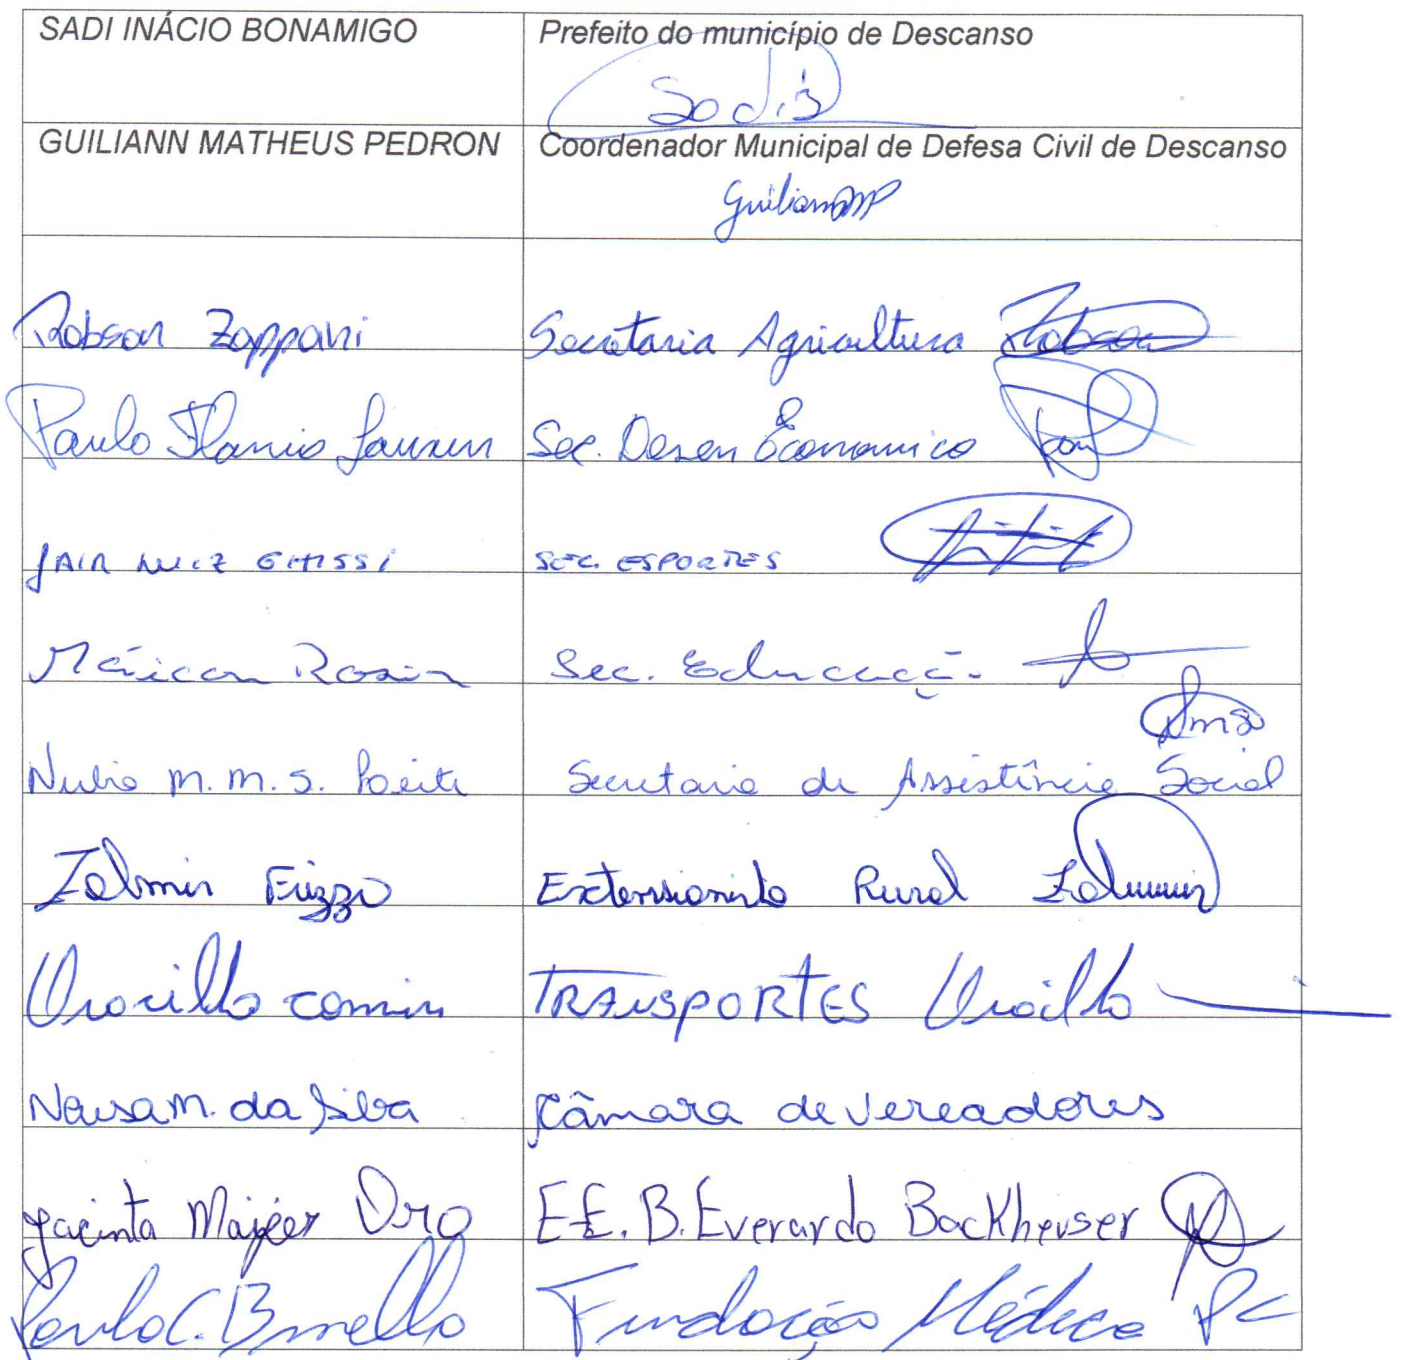 SADI INÁCIO BONAMIGO Prefeito do município de Descanso
Sadi B
GUILIANN MATHEUS PEDRON Coordenador Municipal de Defesa Civil de Descanso
Guiliann MP
Robson Zappani Secretaria Agricultura Robson
Paulo Flavio Sec. Desen Economico
JAIR LUIZ GHISSI SEC. ESPORTES
Máicon Rosin Sec. Educaçã.
Nubia M. M. S. Leite Secretaria de Assistência Social
Zalmir Frizzo Extensionista Rural Zalmir
comin TRANSPORTES
Neusa M. da Silva Câmara de Vereadores
Jacinta Oro E.E.B. Everardo Backheuser
Paulo C. Fundação Médica PC